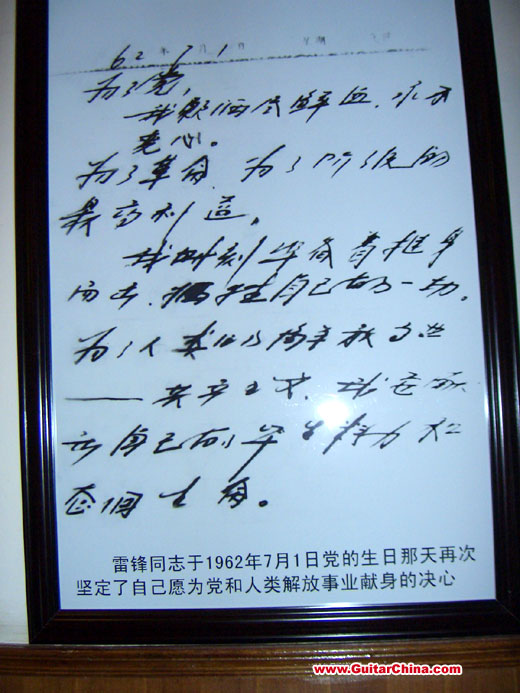 62 年 7 月 1 日 星期
为了党,
我愿洒尽鲜血,永不
变心。
为了革命,为了阶级的
最高利益,
我时刻准备着挺身
而出,牺牲自己的一切。
为了人类的解放事业
——共产主义,我愿献
出自己的毕生精力和
整個生命。
雷锋同志于1962年7月1日党的生日那天再次
坚定了自己愿为党和人类解放事业献身的决心
www.GuitarChina.com